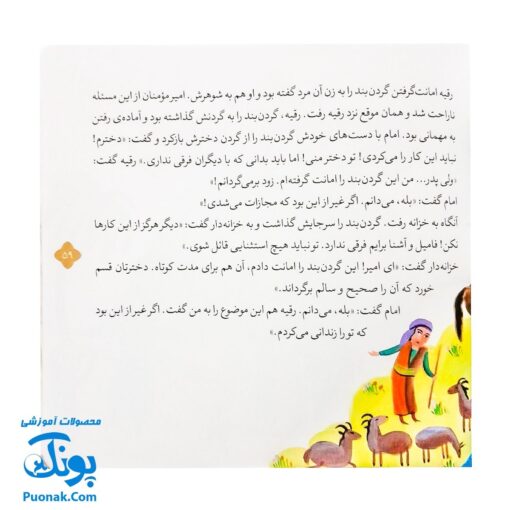 رقیه امانت‌گرفتن گردن‌بند را به زن آن مرد گفته بود و او هم به شوهرش. امیرمؤمنان از این مسئله
ناراحت شد و همان موقع نزد رقیه رفت. رقیه، گردن‌بند را به گردنش گذاشته بود و آماده‌ی رفتن
به مهمانی بود. امام با دست‌های خودش گردن‌بند را از گردن دخترش بازکرد و گفت: «دخترم!
نباید این کار را می‌کردی! تو دختر منی! اما باید بدانی که با دیگران فرقی نداری.» رقیه گفت:
«ولی پدر... من این گردن‌بند را امانت گرفته‌ام. زود برمی‌گردانم!»
امام گفت: «بله، می‌دانم. اگر غیر از این بود که مجازات می‌شدی!»
آنگاه به خزانه رفت. گردن‌بند را سرجایش گذاشت و به خزانه‌دار گفت: «دیگر هرگز از این کارها
نکن! فامیل و آشنا برایم فرقی ندارد. تو نباید هیچ استثنایی قائل شوی.»
خزانه‌دار گفت: «ای امیر! این گردن‌بند را امانت دادم، آن هم برای مدت کوتاه. دخترتان قسم
خورد که آن را صحیح و سالم برگرداند.»
امام گفت: «بله، می‌دانم. رقیه هم این موضوع را به من گفت. اگر غیر از این بود
که تو را زندانی می‌کردم.»
۵۹
محصولات آموزشی
پونک
Puonak.Com